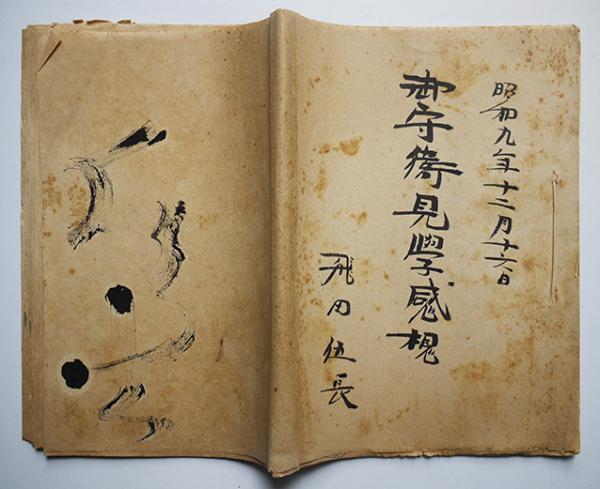 昭和九年十二月十六日
御守衛見學感想
飛田伍長